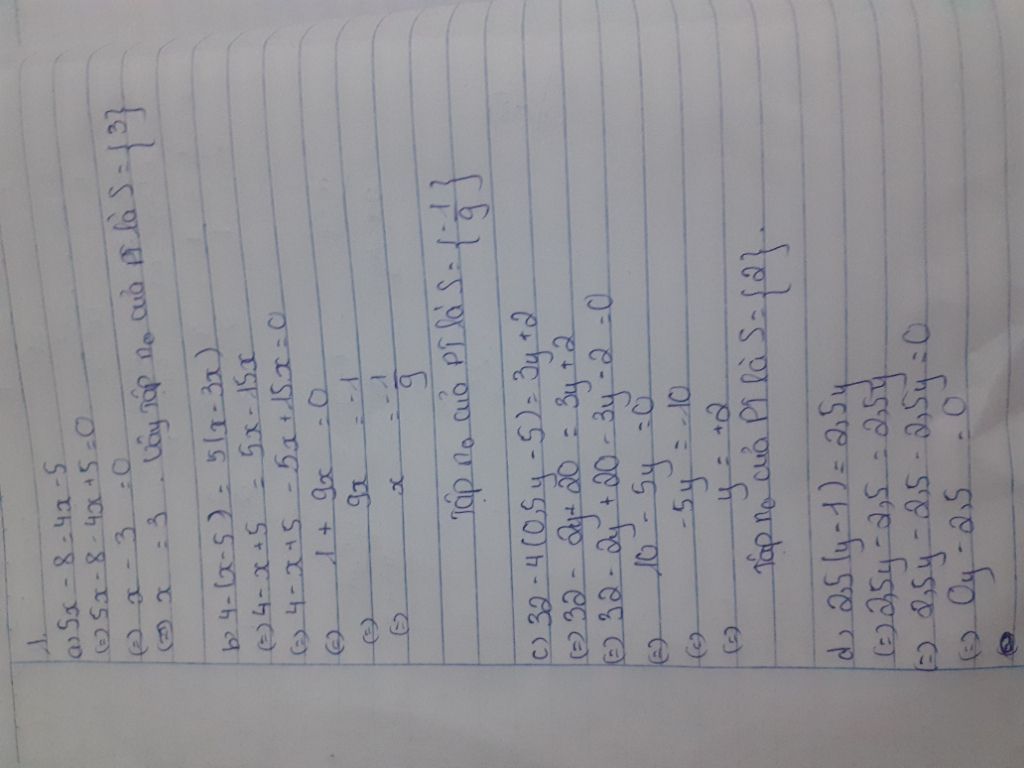 1.
a) 5x - 8 = 4x - 5
(=) 5x - 8 - 4x + 5 = 0
(=) x - 3 = 0
(=) x = 3. Vậy tập no của PT là S = {3}
b) 4 - (x - 5) = 5(x - 3x)
(=) 4 - x + 5 = 5x - 15x
(=) 4 - x + 5 - 5x + 15x = 0
(=) 1 + 9x = 0
(=) 9x = -1
(=) x = -1/9
Tập no của PT là S = {-1/9}
c) 32 - 4(0,5y - 5) = 3y + 2
(=) 32 - 2y + 20 = 3y + 2
(=) 32 - 2y + 20 - 3y - 2 = 0
(=) 10 - 5y = 0
(=) -5y = -10
(=) y = +2
Tập no của PT là S = {2}.
d) 2,5(y - 1) = 2,5y
(=) 2,5y - 2,5 = 2,5y
(=) 2,5y - 2,5 - 2,5y = 0
(=) 0y - 2,5 = 0